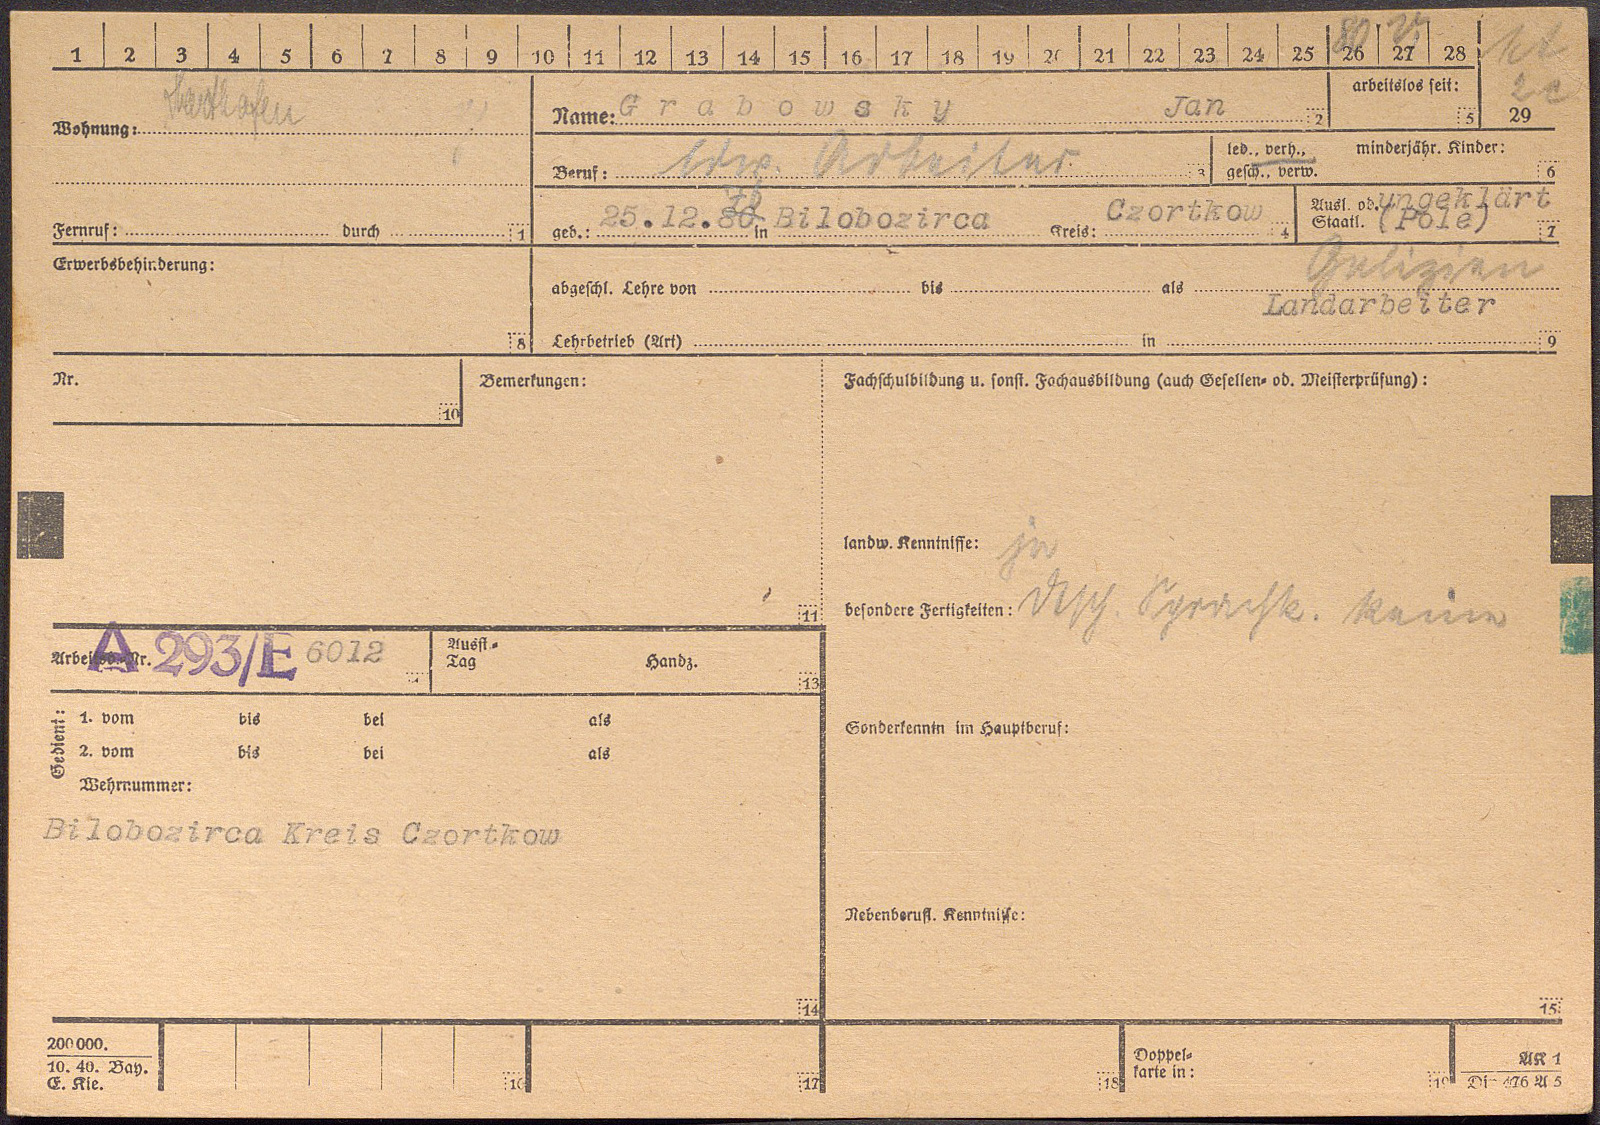 1 2 3 4 5 6 7 8 9 10 11 12 13 14 15 16 17 18 19 20 21 22 23 24 25 26 27 28
80
arbeitslos seit:
5
29
Wohnung:
Name: Grabowsky Jan
2
Beruf: ldw. Arbeiter
3
led., verh.,
gesch., verw.
minderjähr. Kinder:
6
Fernruf: durch
1
geb.: 25.12.80 in Bilobozirca Kreis: Czortkow
78
4
Ausl. od. ungeklärt
Staatl. (Pole)
7
Erwerbsbehinderung:
8
Galizien
abgeschl. Lehre von bis als
Landarbeiter
Lehrbetrieb (Art) in
9
Nr.
10
Bemerkungen:
11
Fachschulbildung u. sonst. Fachausbildung (auch Gesellen- od. Meisterprüfung):
landw. Kenntnisse: ja
besondere Fertigkeiten: Dtsch. Sprachk. keine
Arbeitsb. Nr. A 293/E 6012
Ausst.-
Tag
Handz.
13
Gedient:
1. vom bis bei als
2. vom bis bei als
Wehrnummer:
Bilobozirca Kreis Czortkow
14
Sonderkenntn im Hauptberuf:
Nebenberufl. Kenntnisse:
15
200 000.
10. 40. Bay.
E. Kie.
16
17
18
Doppel-
karte in:
19
AK 1
Din 476 A 5